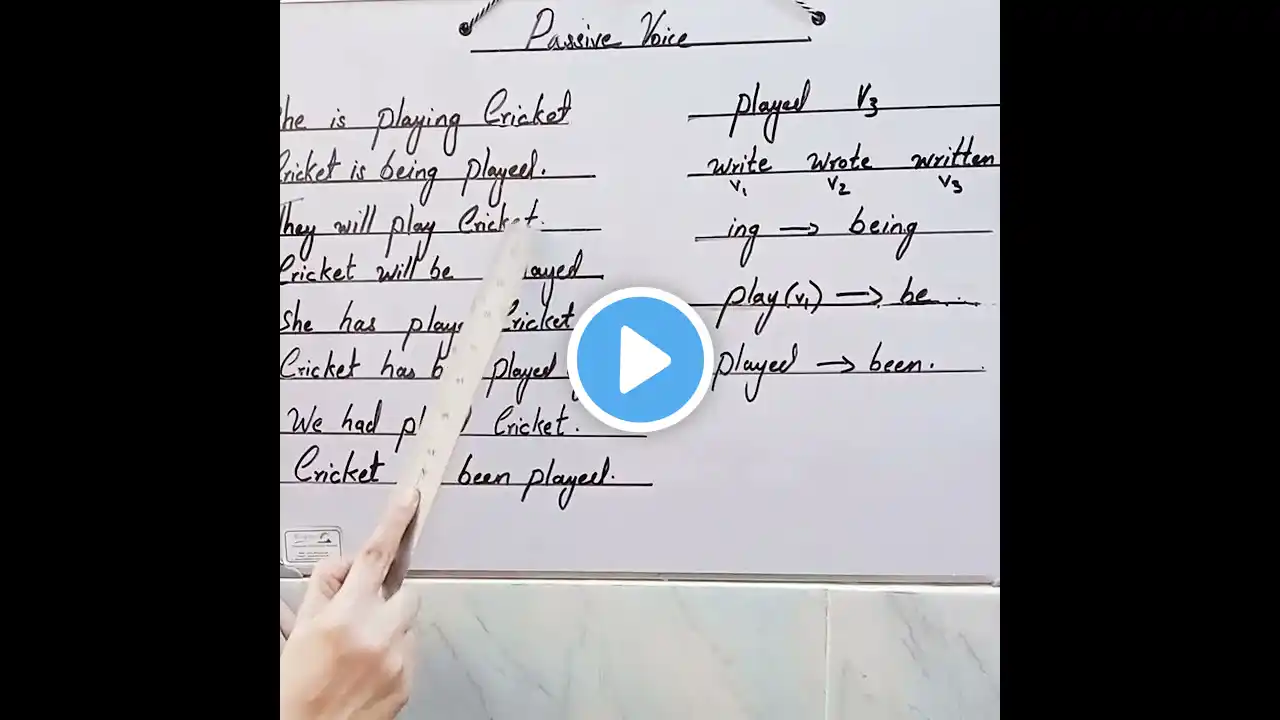 Passive Voice
he is playing Cricket
Cricket is being played.
They will play Cricket.
Cricket will be played
She has played Cricket
Cricket has been played
We had played Cricket.
Cricket been played.
played V3
write wrote written
V1 V2 V3
ing → being
play (V1) → be
played → been.